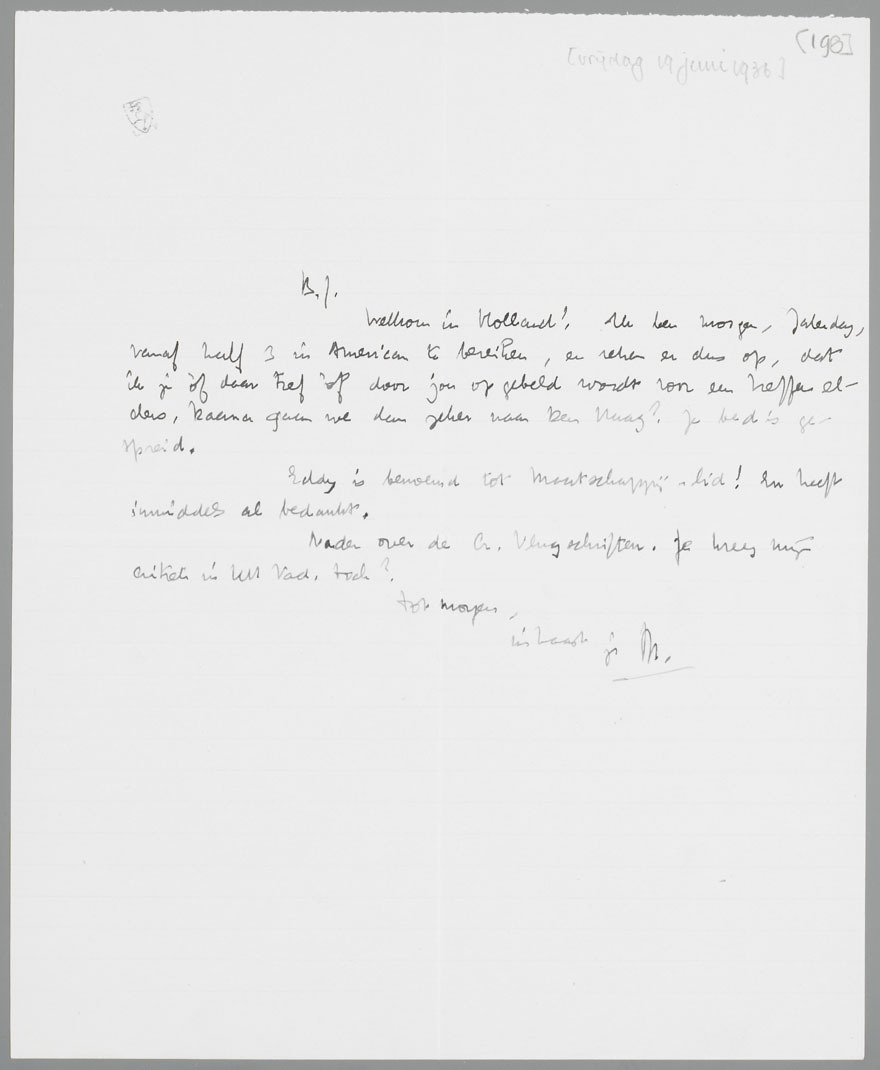 [198]
[vrijdag 19 juni 1936]
B.J.
Welkom in Holland! Ik ben morgen, Zaterdag,
vanaf half 3 in American te bereiken, en reken er dus op, dat
ik je òf daar tref òf door jou opgebeld wordt voor een treffen el-
ders, waarna gaan we dan zeker naar Den Haag? Je bed is ge-
spreid.
Eddy is benoemd tot Maatschappij-lid! En heeft
inmiddels al bedankt.
Nader over de Cr. Vlugschriften. Je kreeg mijn
critiek in Het Vad. toch?
tot morgen,
in haast je M.